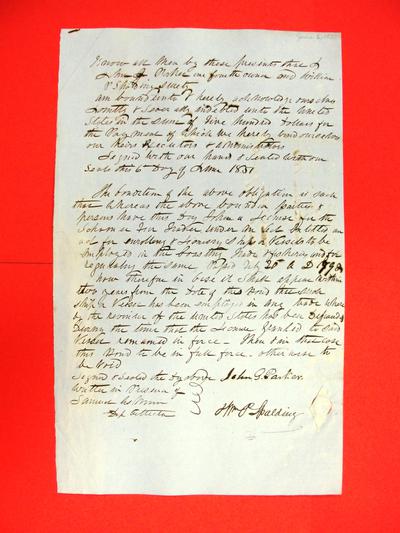 Know all Men by these presents that I
John G Parker one fourth owner and
P Spalding Surety
am bound unto & hereby acknowledge ourselves
Jointly & Severally indebted unto the United
States in the Sum of Five Hundred Dollars for
the Payment of which we hereby bind ourselves
our heirs Executors & administrators
Signed with our hand & Sealed with our
Seals this 6 Day of June 1831
The Condition of the above obligation is such
that Whereas the above bounden parties &
persons have this Day taken a License for the
Schooner under an act Intitled an
act for enrolling & Licensing Ships or Vessels to be
Employed in the Coasting trade & fisheries and for
regulating the same Passed 1793
Now therefore in case it Shall appear within
two years from the Date of this Bond that Such
Ship or Vessel has been employed in any trade where
by the revenue of the United States has been Defrauded
During the time that the License Granted to Said
Vessel remained in force Then in that case
this Bond to be in full force otherwise to
be Void
Signed & Sealed the Day above
written in Presence of
Samuel
Dep Collector
John G. Parker.
Wm P Spalding